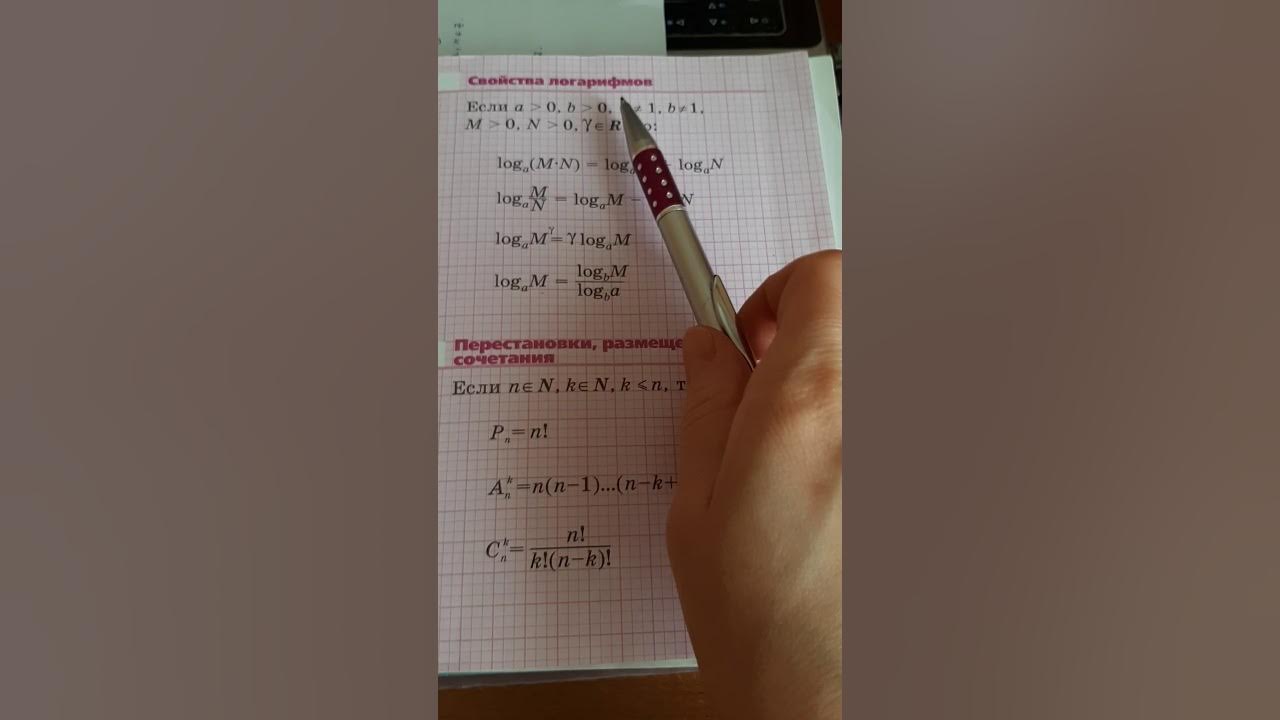 Свойства логарифмов
Если a > 0, b > 0, ≠ 1, b ≠ 1,
M > 0, N > 0, γ ∈ R
logₐ(M·N) = logₐ logₐN
logₐ M/N = logₐM − N
logₐM^γ = γ logₐM
logₐM = log_bM / log_ba
Перестановки,
сочетания
Если n ∈ N, k ∈ N, k ⩽ n,
Pₙ = n!
Aₙᵏ = n(n−1)...(n−k+
Cₙᵏ = n! / k!(n−k)!